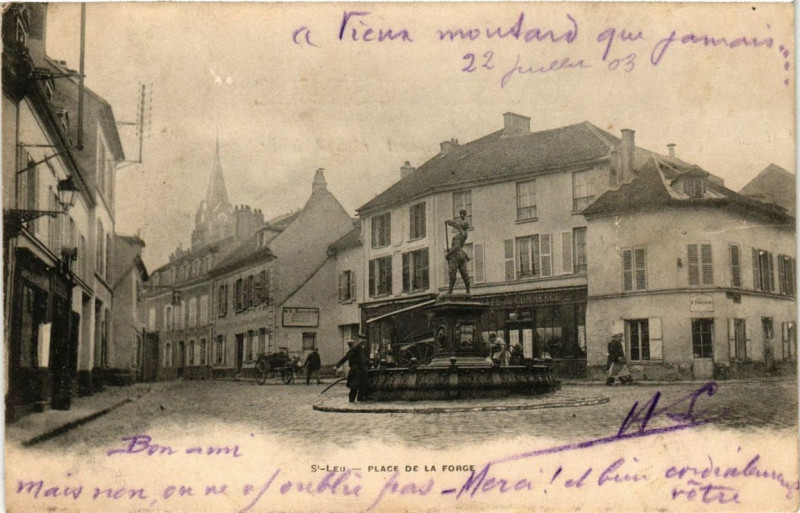 a Vieux moutard que jamais....
22 juillet 03
DU COMMERCE
Bon ami
St-LEU — PLACE DE LA FORGE
mais non, on ne t'oublie pas - Merci! et bien cordialement
vôtre